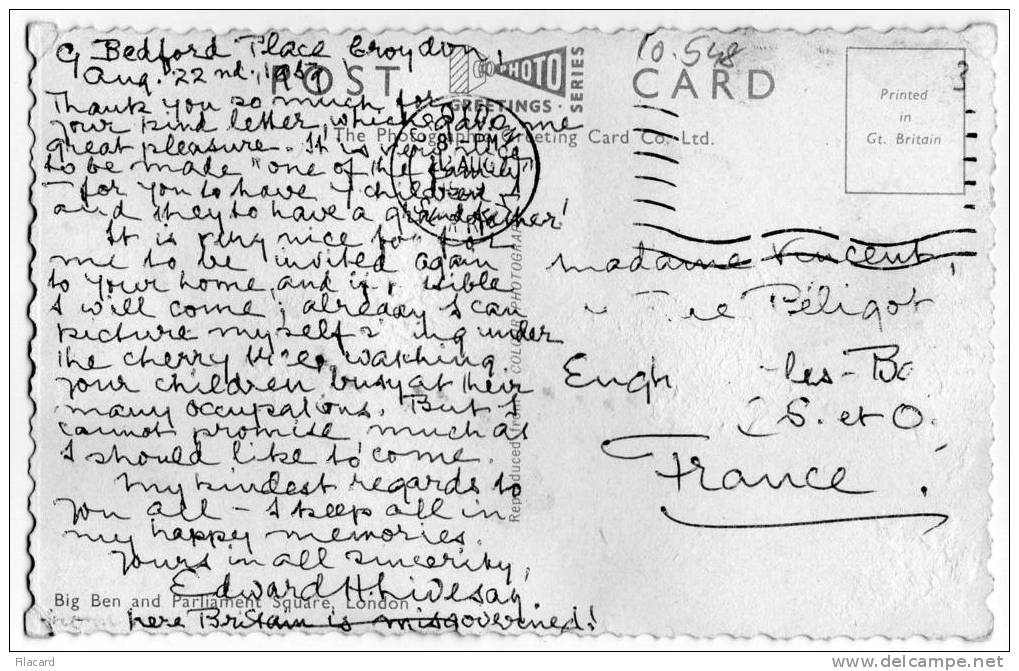 9 Bedford Place Croydon,
Aug. 22nd, 1959
Thank you so much for
your kind letter, which gave me
great pleasure. It is very nice
to be made "one of the family"
– for you to have 4 children –
and they to have a grandfather!
It is very nice for
me to be invited again
to your home, and if possible
I will come; already I can
picture myself sitting under
the cherry tree, watching
your children busy at their
many occupations. But I
cannot promise, much as
I should like to come.
My kindest regards to
you all – I keep all in
my happy memories.
Yours in all sincerity,
Edward H. Livesay
Big Ben and Parliament Square, London
here Britain is misgoverned!
POST CARD
PHOTO
GREETINGS
SERIES
The Photographic Greeting Card Co. Ltd.
Reproduced from COLOUR PHOTOGRAPH
10.548
Printed
in
Gt. Britain
3
8 PM
AUG
Madame Vincent,
Rue Péligot
Engh les-Ba
(S. et O.
France.
Filacard
http://www.delcampe.net